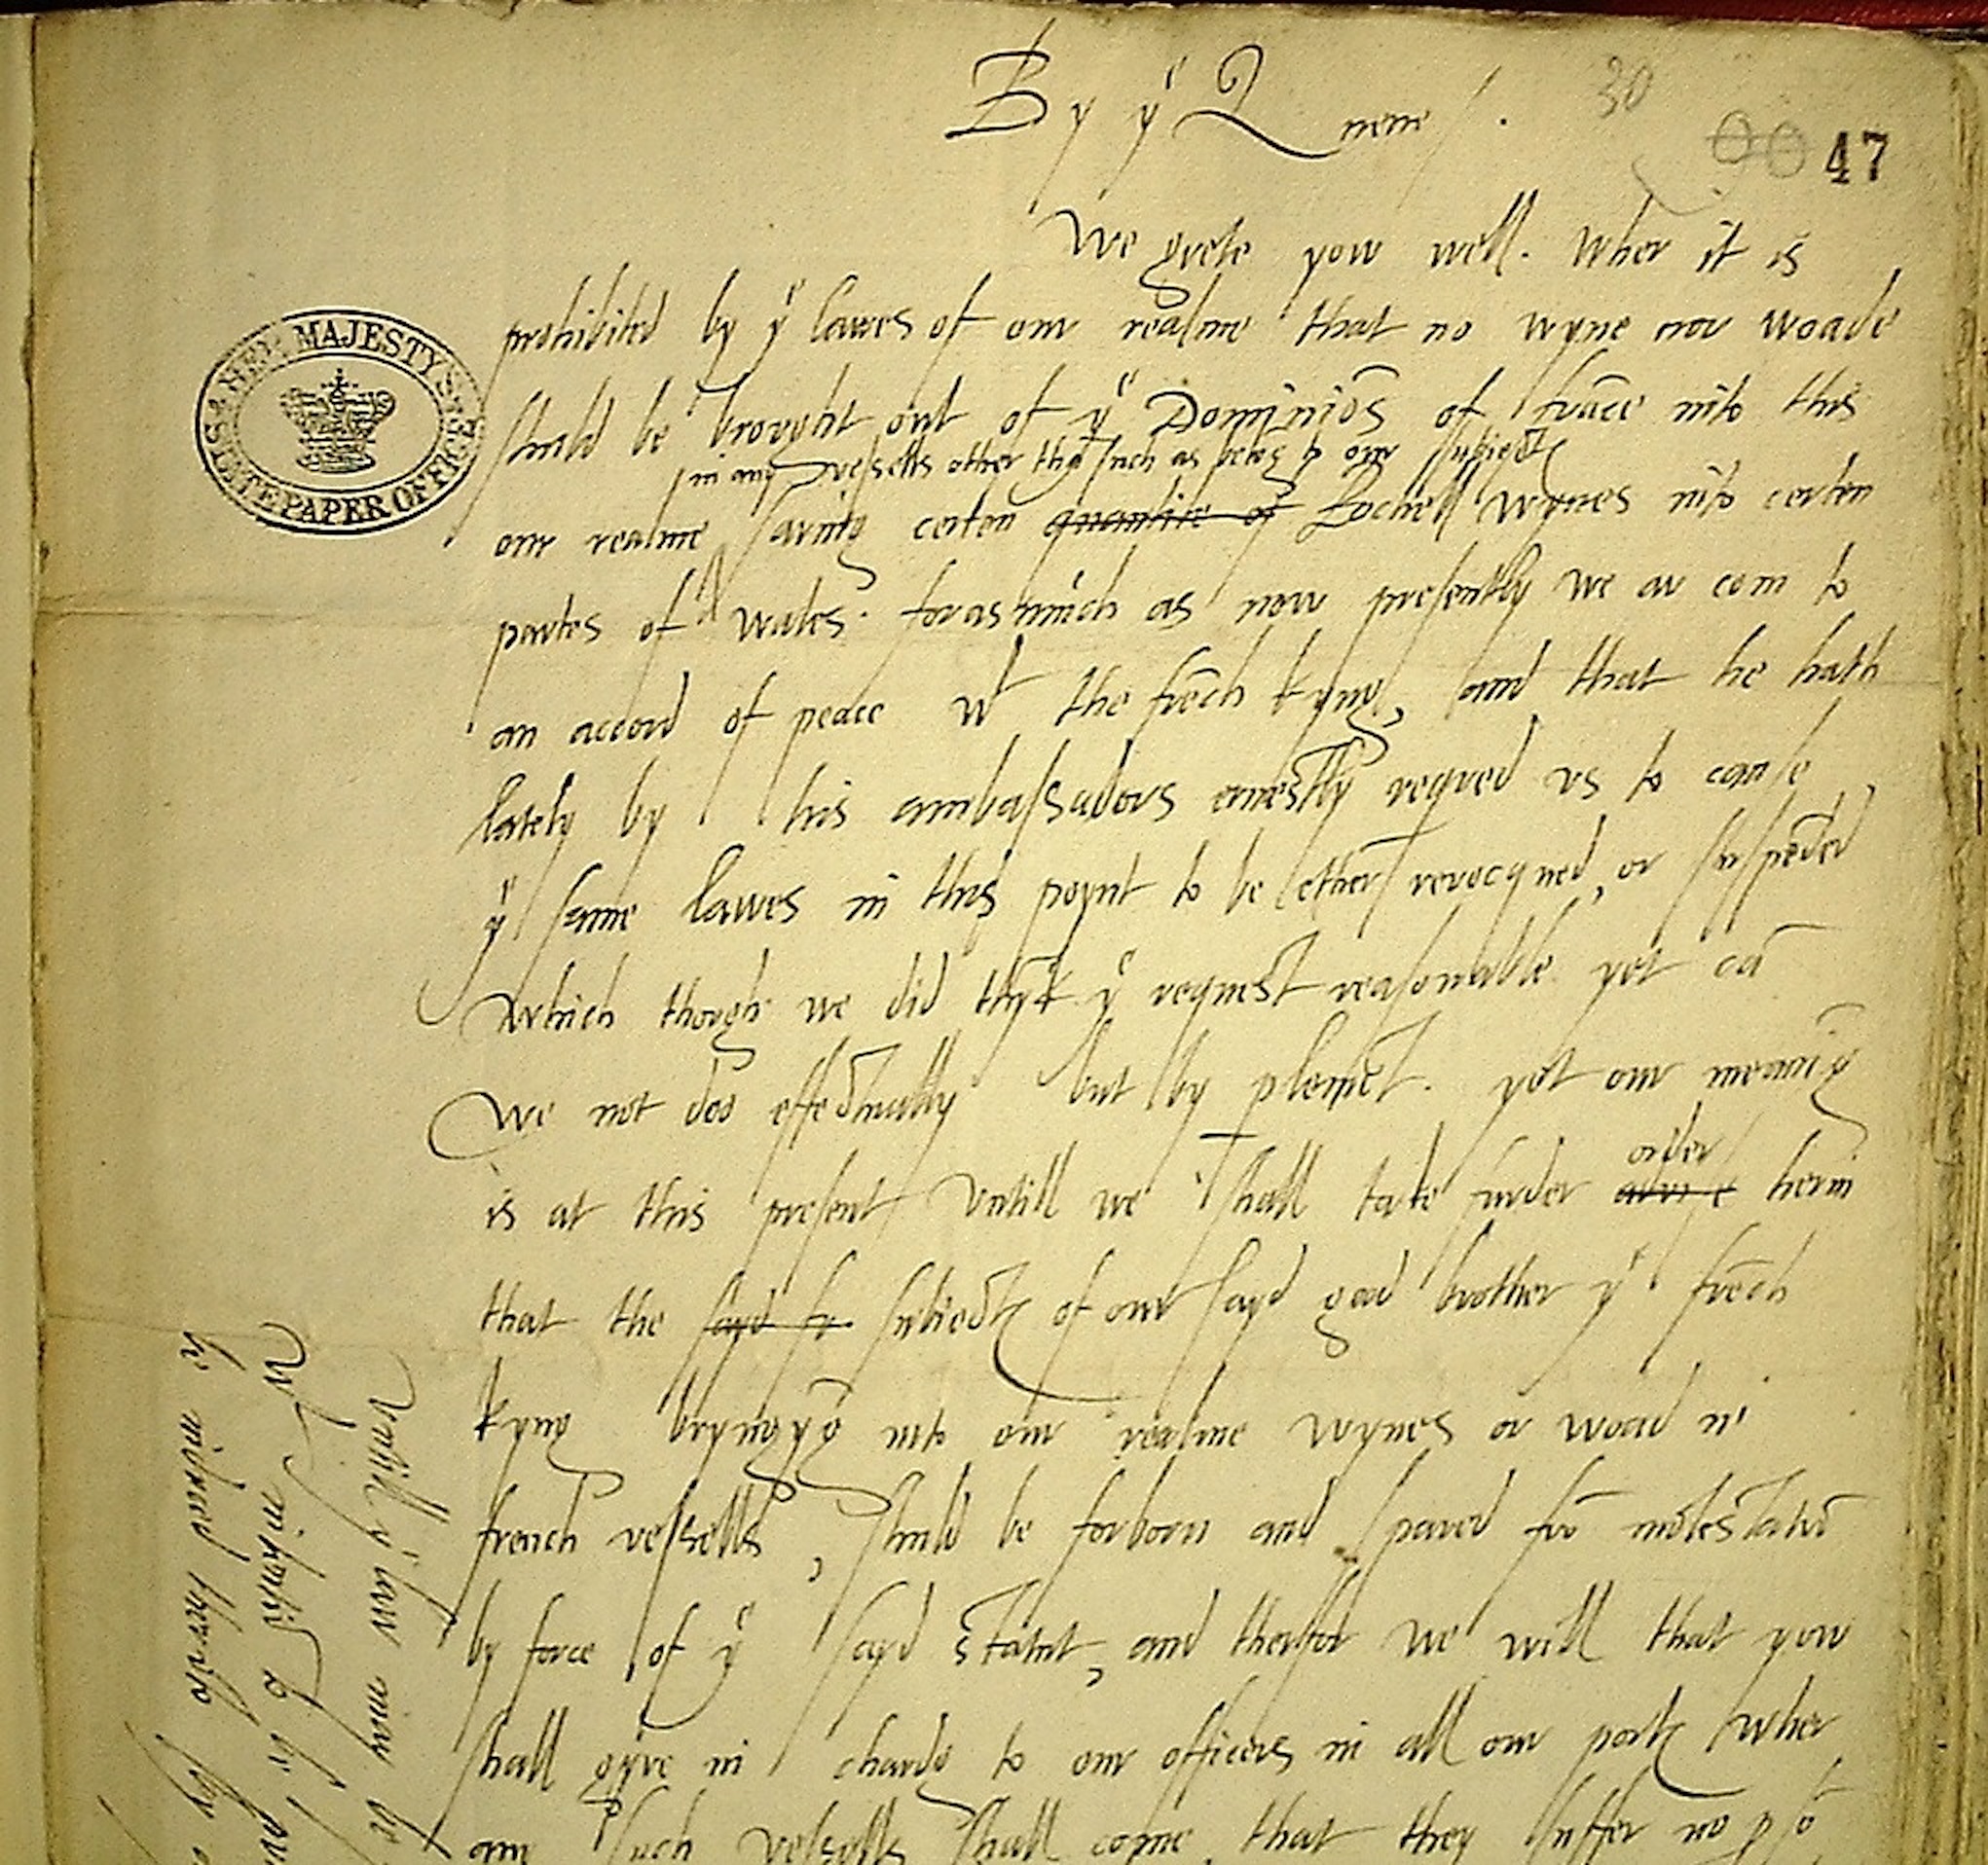 By yͤ Quene /.
30
90 47
We grete yow well. Wher it is
prohibited by yͤ lawes of our realme that no wyne nor woade
shuld be brought out of yͤ Dominiōs of frāce into this
in any vessells other thā such as belōg to our subiectꝭ
our realme saving certen quantite of Rochell wynes into certen
partes of Wales. forasmuch as now presently we ar com to
an accord of peace wᵗ the frēch kyng, and that he hath
lately by his ambassadors ernestly reqred vs to cause
yͤ same lawes in this poynt to be ether revocqued, or suspēded
which though we did thȳk yͤ request reasonable yet cā
we not doo effectually but by plemēt. yet our meanīg
order
is at this present vntill we shall take furder advise herin
that the sayd fr. subiectꝭ of our sayd good brother yͤ frēch
kyng bryngyḡ into our realme wynes or woad in
french vessells, shuld be forborn and spared frō molestatiō
by force of yͤ sayd statut, and therfor we will that yow
shall gyve in chardg to our officers in all our portꝭ wher
any such vessells shall come, that they suffer no psō
HER MAJESTY'S
STATE PAPER OFFICE
vntill yͤ law may be
be induced therwith by